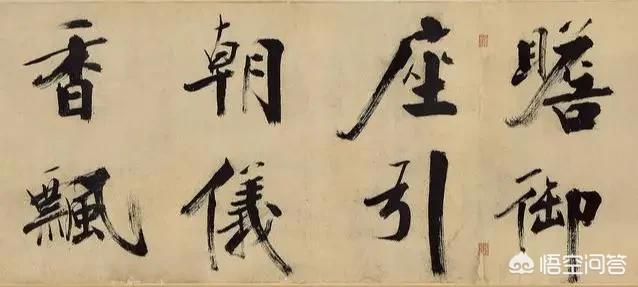 瞻御
座引
朝儀
香飄
悟空问答